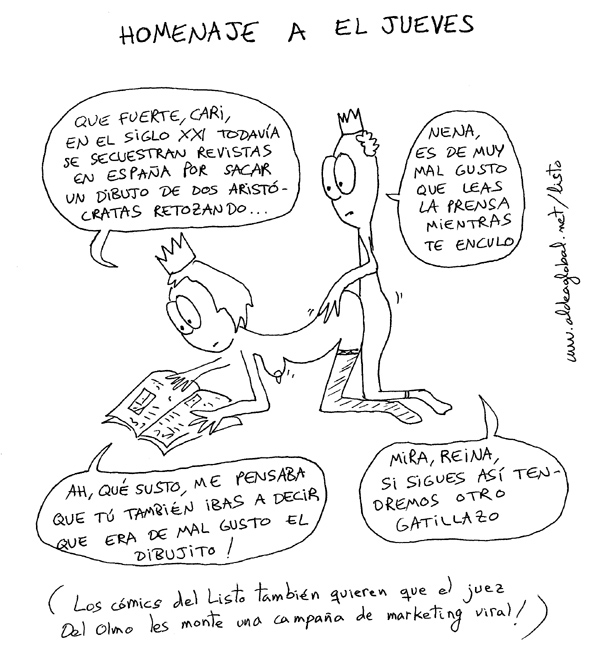 HOMENAJE A EL JUEVES
QUE FUERTE, CARI,
EN EL SIGLO XXI TODAVÍA
SE SECUESTRAN REVISTAS
EN ESPAÑA POR SACAR
UN DIBUJO DE DOS ARISTÓ-
CRATAS RETOZANDO...
NENA,
ES DE MUY
MAL GUSTO
QUE LEAS
LA PRENSA
MIENTRAS
TE ENCULO
www.aldeaglobal.net/listo
AH, QUÉ SUSTO, ME PENSABA
QUE TÚ TAMBIÉN IBAS A DECIR
QUE ERA DE MAL GUSTO EL
DIBUJITO!
MIRA, REINA,
SI SIGUES ASÍ TEN-
DREMOS OTRO
GATILLAZO
(Los cómics del Listo también quieren que el juez
Del Olmo les monte una campaña de marketing viral!)